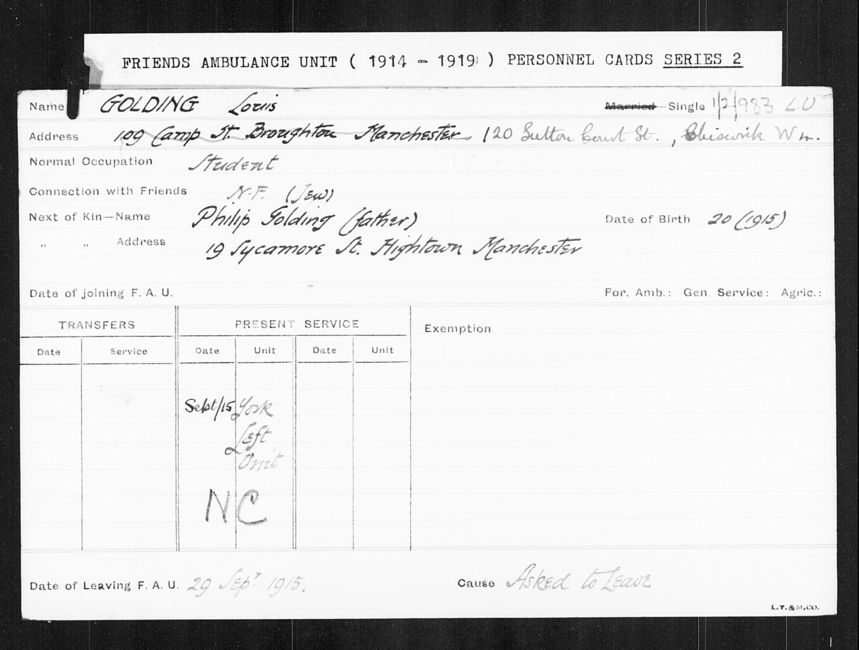 FRIENDS AMBULANCE UNIT ( 1914 - 1919 ) PERSONNEL CARDS SERIES 2
Name GOLDING Louis Married Single 1/2/1983 LU
Address 109 Camp St. Broughton Manchester 120 Sutton Court St., Chiswick W
Normal Occupation Student
Connection with Friends N.F. (Jew)
Next of Kin—Name Philip Golding (father) Date of Birth 20 (1915)
„ „ Address 19 Sycamore St. Hightown Manchester
Date of joining F. A. U. For. Amb.: Gen. Service: Agric.:
TRANSFERS PRESENT SERVICE Exemption
Date Service Date Unit Date Unit
Sept/15 York
Left
Unit
NC
Date of Leaving F. A. U. 29 Sept. 1915. Cause Asked to Leave
L.T.& M.CO.